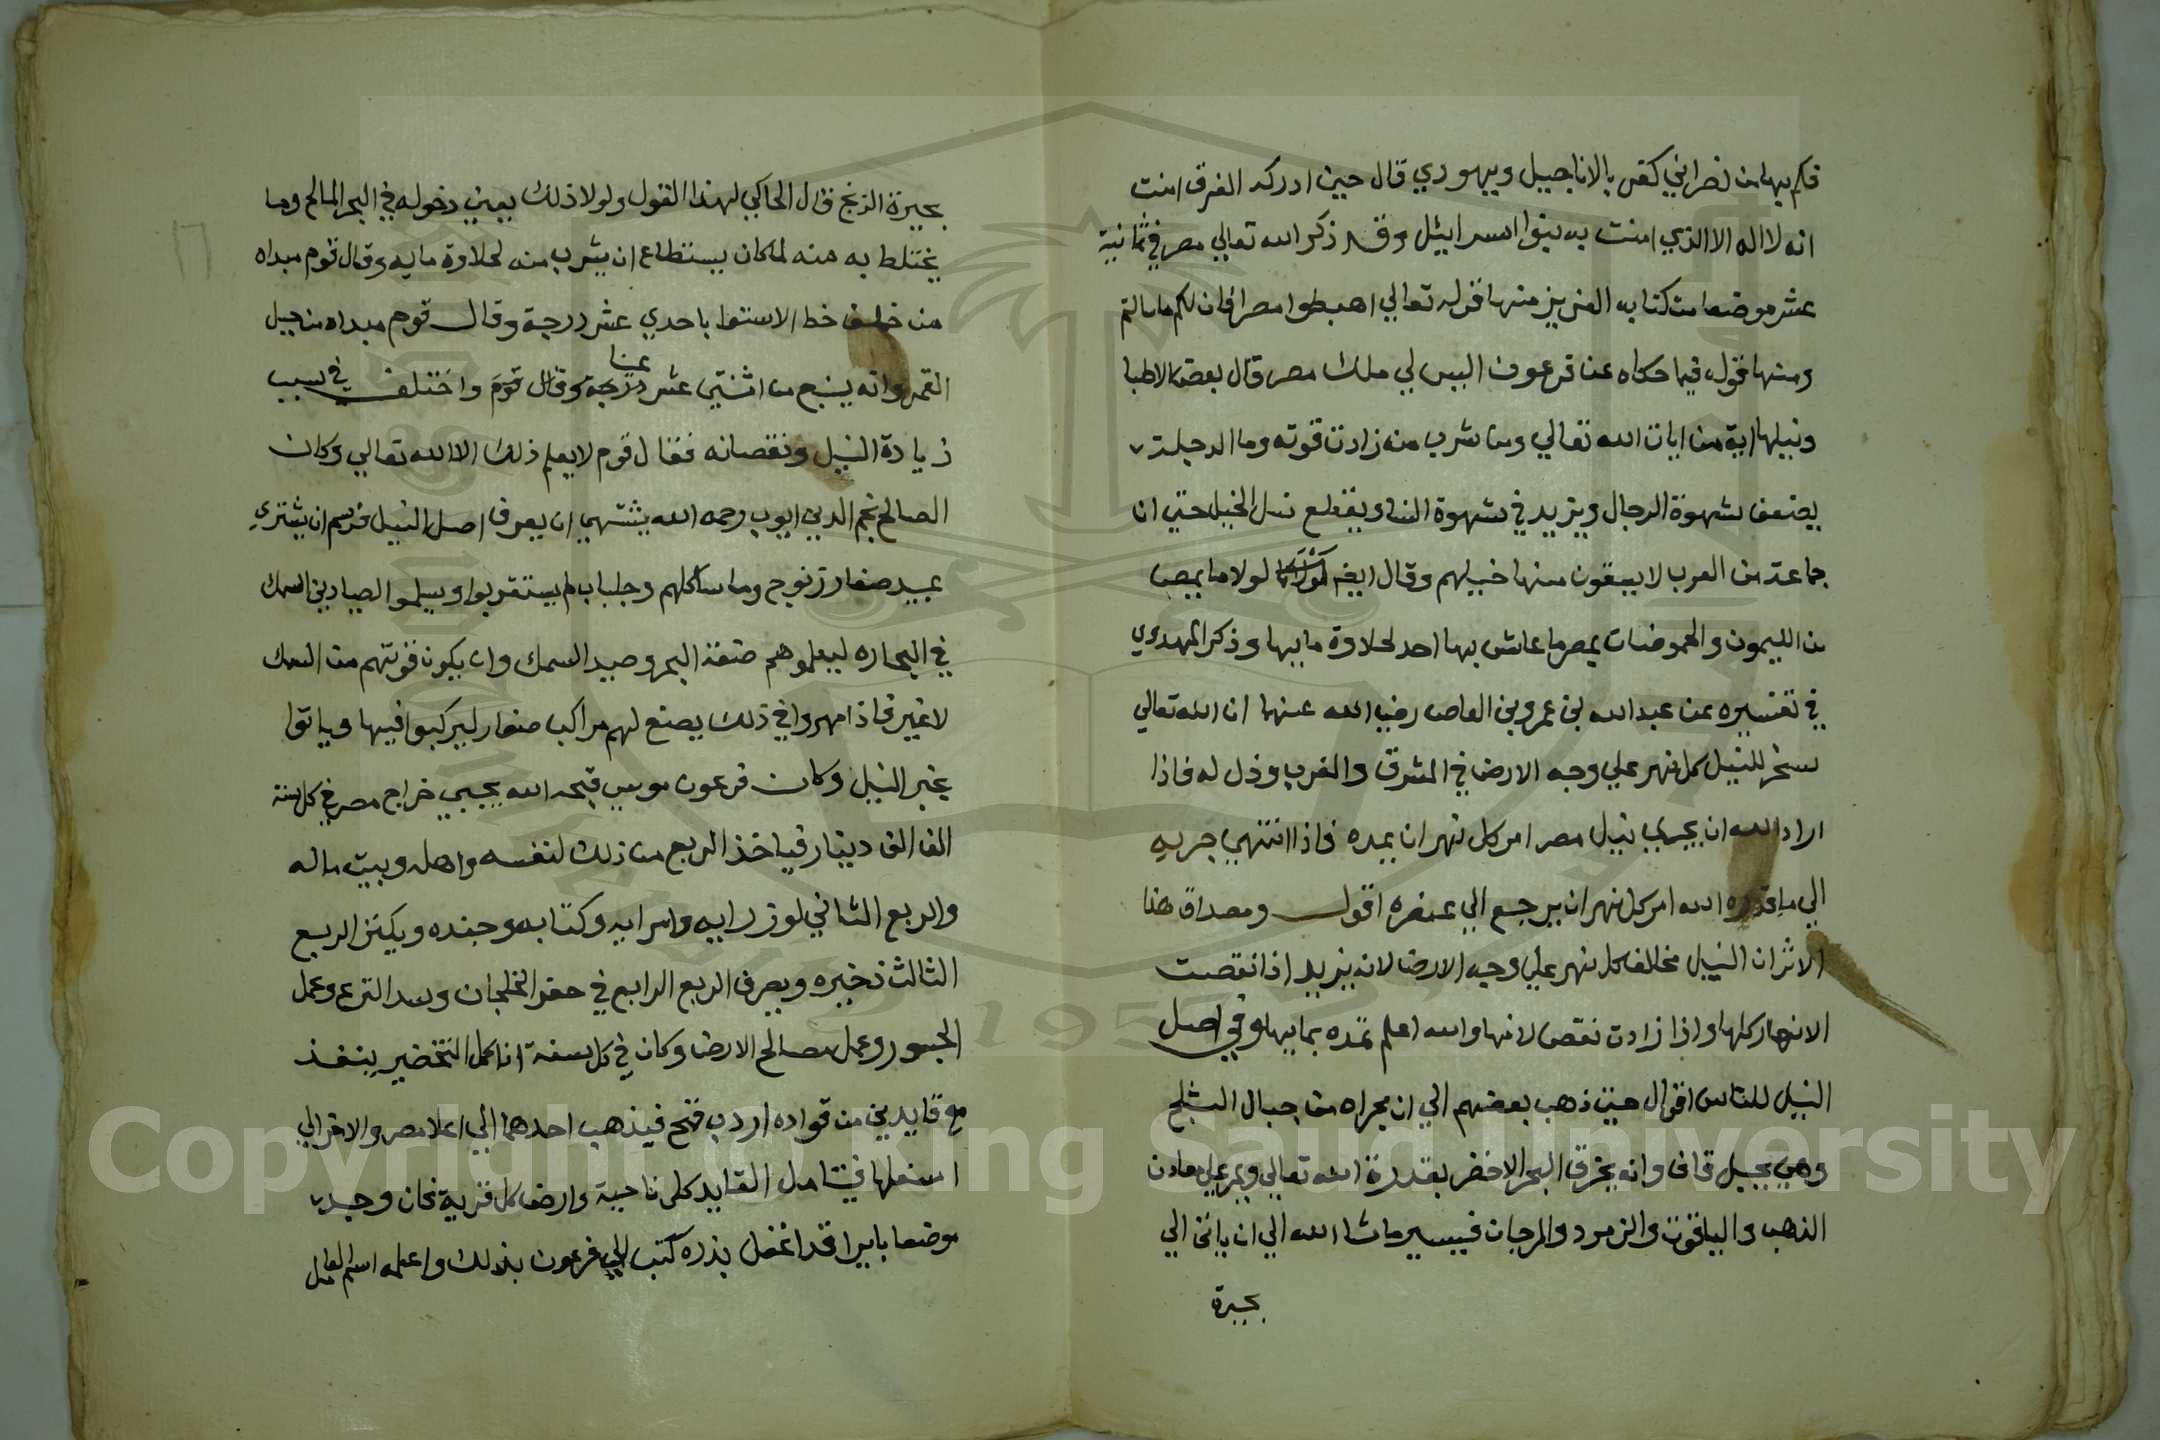 فكم بها من نصراني كفر بالاناجيل ويهودي قال حين ادركه الغرق امنت
انه لا اله الا الذي امنت به بنوا اسرائيل وقد ذكر الله تعالي مصر في ثمانية
عشر موضعا من كتابه العزيز منها قوله تعالي اهبطوا مصرا فان لكم ما سالتم
ومنها قوله فيما حكاه عن فرعون اليس لي ملك مصر قال بعض الاطبا
ونيلها اية من ايات الله تعالي ومن شرب منه زادت قوته وما الدجلة
يضعف شهوة الرجال ويزيد في شهوة النسا ويقطع نسل الخيل حتي ان
جماعة من العرب لا يسقون منها خيلهم وقال ايضا لولا ما بمصر
من الليمون والحموضات بمصر ما عاش بها احد لحلاوة مايها وذكر المهدوي
في تفسيره عن عبد الله بن عمرو بن العاص رضي الله عنهما ان الله تعالي
سخر للنيل كل نهر علي وجه الارض في المشرق والغرب وذل له فاذا
اراد الله ان يجري نيل مصر امر كل نهر ان يمده فاذا انتهي جريه
الي ما قدره الله امر كل نهر ان يرجع الي عنصره اقول ومصداق هذا
الاثر ان النيل مخالف كل نهر علي وجه الارض لانه يزيد اذا نقصت
الانهار كلها واذا زادت نقص لانها والله اعلم تمده بمايها وفي اصل
النيل للناس اقوال حتي ذهب بعضهم الي ان مجراه من جبال الثلج
وهي بجبل قاف وانه يخرق البحر الاخضر بقدرة الله تعالي ويمر علي معادن
الذهب والياقوت والزمرد والمرجان فيسير ما شا الله الي ان ياتي الي
بحيرة
بحيرة الزنج قال الحاكي لهذا القول ولولا ذلك يعني دخوله في البحر المالح وما
يختلط به منه لما كان يستطاع ان يشرب منه لحلاوة مايه وقال قوم مبداه
من خلف خط الاستوا باحدي عشر درجة وقال قوم مبداه من جبل
القمر وانه ينبع من اثنتي عشر عينا وقال قوم واختلف في سبب
زيادة النيل ونقصانه فقال قوم لا يعلم ذلك الا الله تعالي وكان
الصالح نجم الدين ايوب رحمه الله يشتهي ان يعرف اصل النيل فرسم ان يشتري
عبيد صغار زنوج وما شاكلهم وجلباب لم يستعربوا ويسلموا لصيادين السمك
في البحاره ليعلموهم صنعة البحر وصيد السمك وان يكون قوتهم من السمك
لا غير فاذا مهروا في ذلك يصنع لهم مراكب صغار ليركبوا فيها وياتوا
بخبر النيل وكان فرعون موسي قبحه الله يجبي خراج مصر في كل سنة
الف الف دينار فياخذ الربع من ذلك لنفسه واهله وبيت ماله
والربع الثاني لوزرايه وامرايه وكتابه وجنده ويكنز الربع
الثالث ذخيره ويصرف الربع الرابع في حفر الخلجان وسد الترع وعمل
الجسور وعمل مصالح الارض وكان في كل سنة اذا كمل التخضير ينفذ
مع قايدين من قواده اردب قمح فيذهب احدهما الي اعلا مصر والاخر الي
اسفلها فيتامل القايد كل ناحية وارض كل قرية فان وجد
موضعا بايرا قد اغفل بذره كتب الي فرعون بذلك واعلمه اسم العامل
Copyright © King Saud University
1957